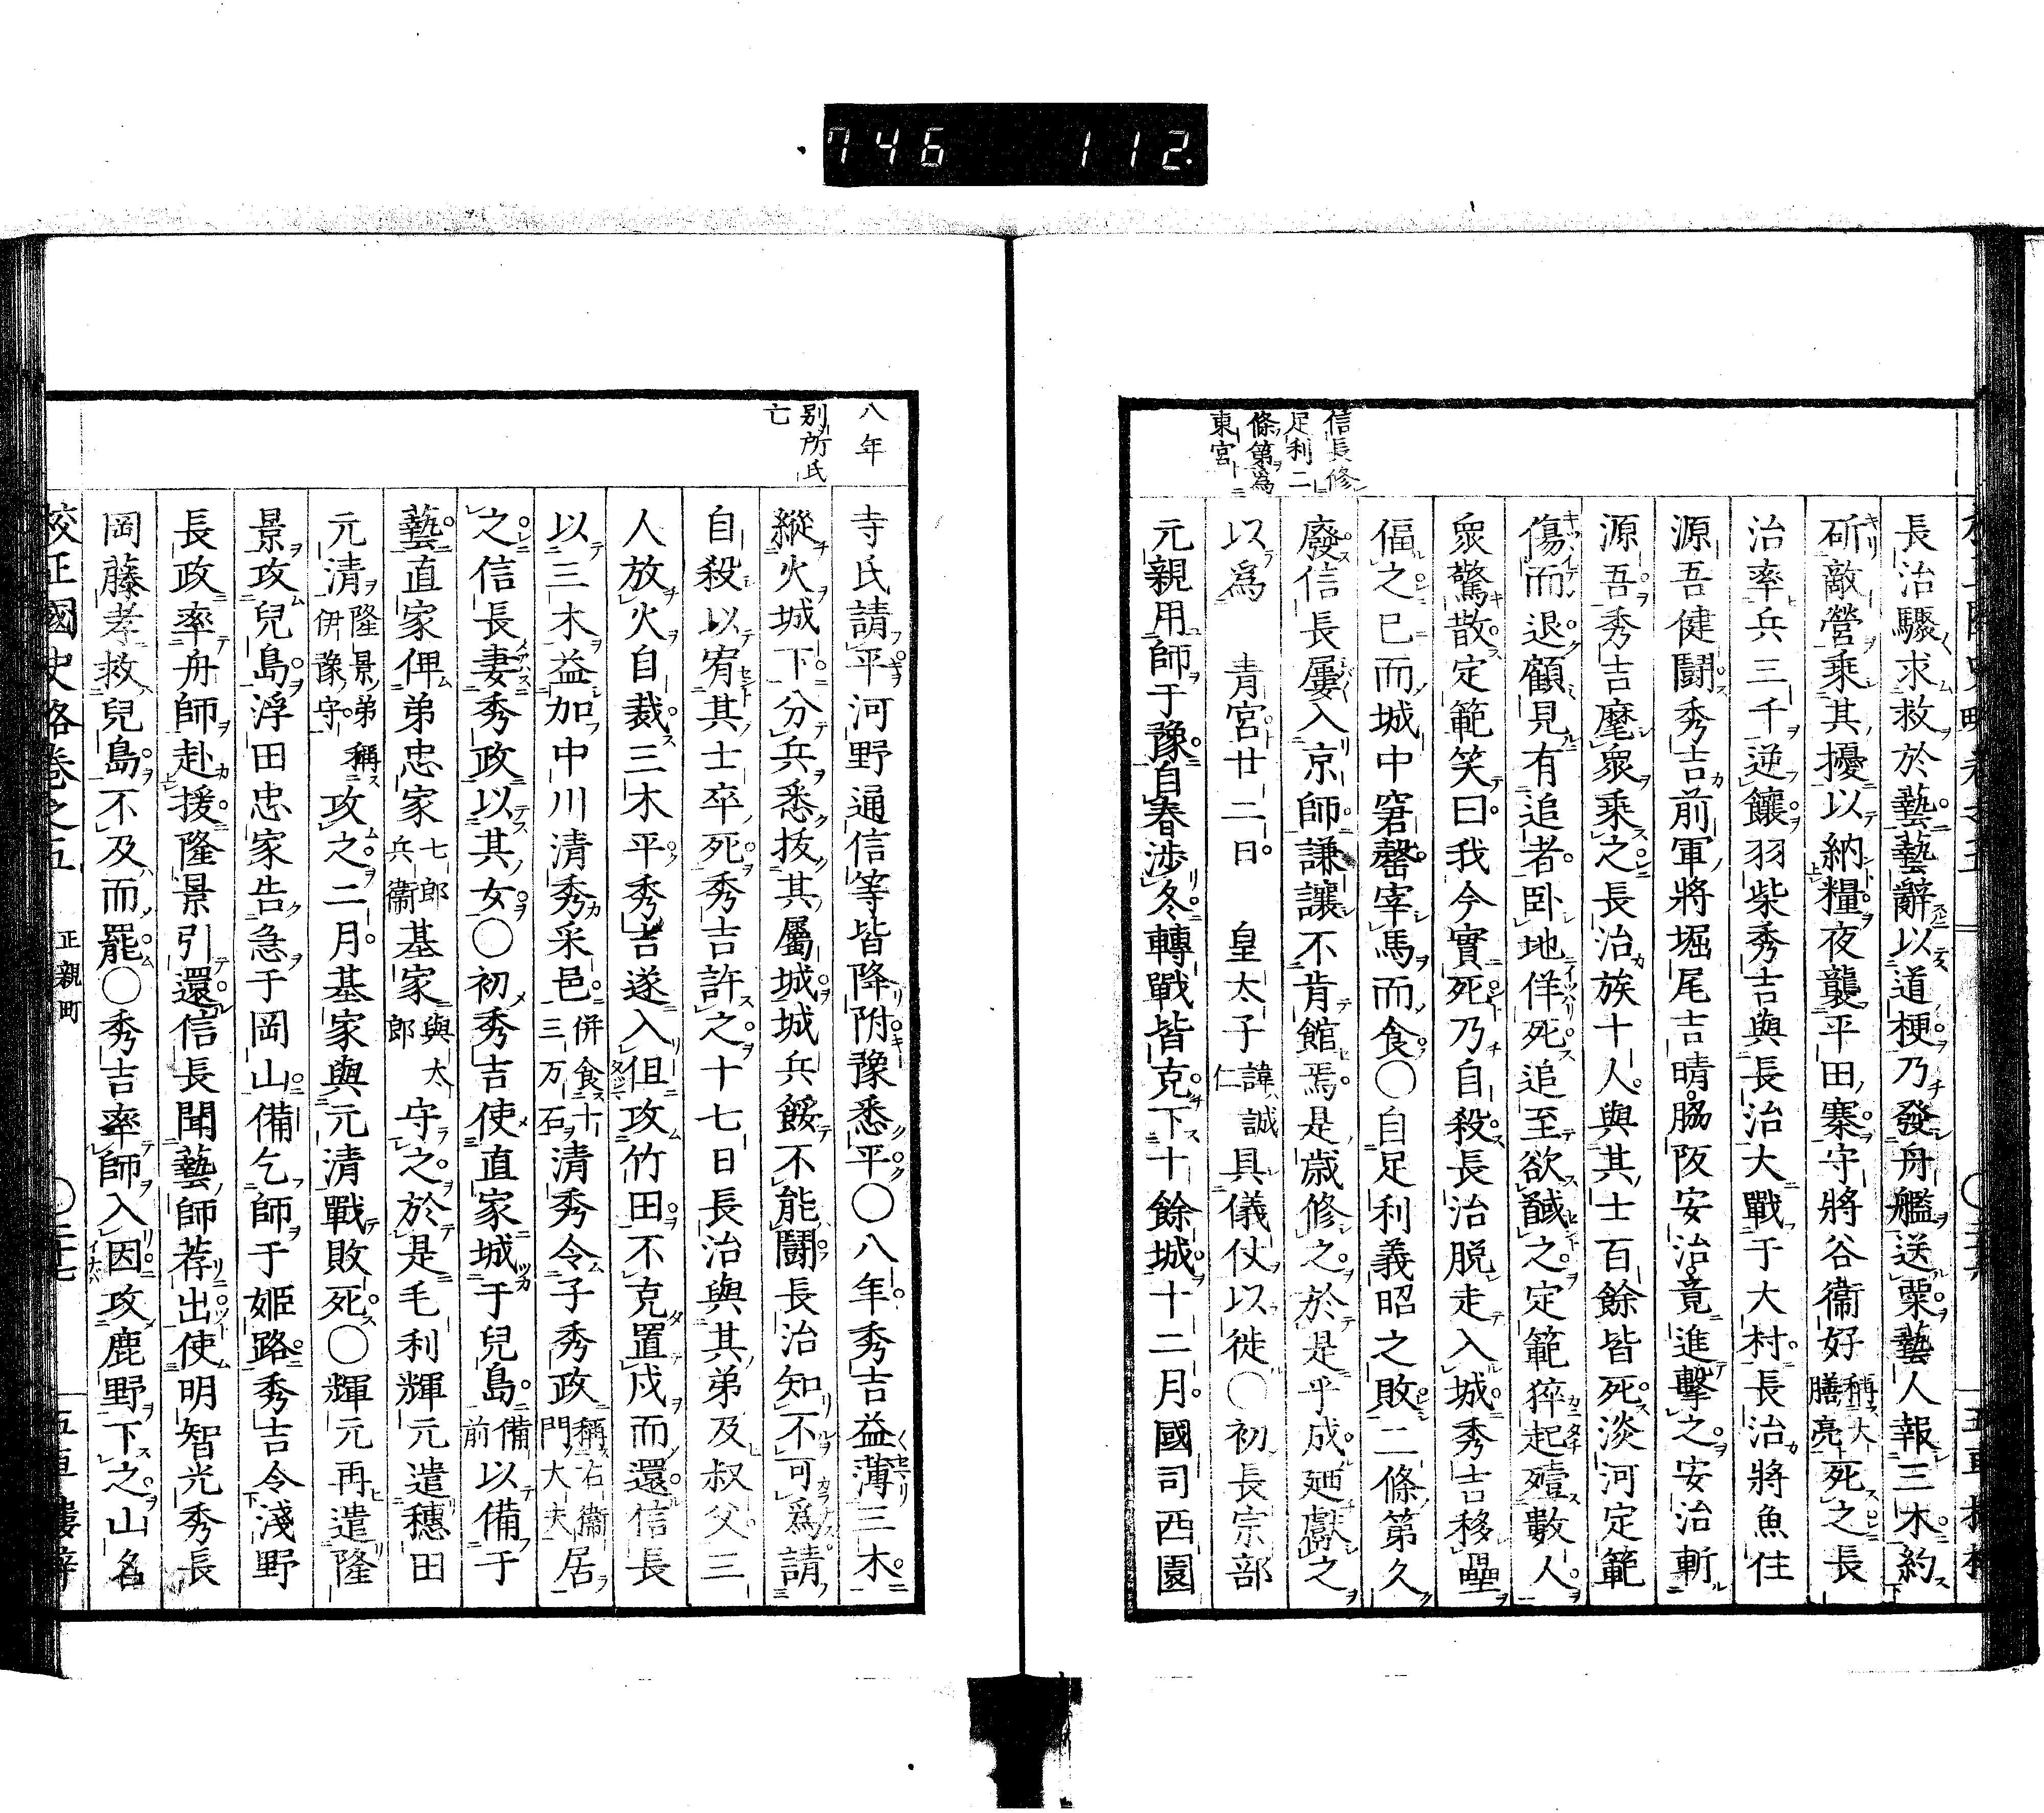 746 112.
信長修
足利二
條第爲
東宮
長治驟求救於藝藝辭以道梗乃發舟艦送粟藝人報三木約
斫敵營乘其擾以納糧夜襲平田寨守將谷衞好稱大膳亮死之長
治率兵三千逆饟羽柴秀吉與長治大戰于大村長治將魚住
源吾健鬪秀吉前軍將堀尾吉晴脇阪安治竟進擊之安治斬
源吾秀吉麾衆乘之長治族十人與其士百餘皆死淡河定範
傷而退顧見有追者卧地佯死追至欲馘之定範猝起殪數人
衆驚散定範笑曰我今實死乃自殺長治脱走入城秀吉移壘
偪之已而城中窘罄宰馬而食〇自足利義昭之敗二條第久
廢信長屢入京師謙讓不肯館焉是歲修之於是乎成廼獻之
以爲 青宮廿二日 皇太子諱誠仁具儀仗以徙〇初長宗部
元親用師于豫自春涉冬轉戰皆克下十餘城十二月國司西園
八年
别所氏
亡
寺氏請平河野通信等皆降附豫悉平〇八年秀吉益薄三木
縱火城下分兵悉拔其屬城城兵餒不能鬪長治知不可爲請
自殺以宥其士卒死秀吉許之十七日長治與其弟及叔父三
人放火自裁三木平秀吉遂入但攻竹田不克置戍而還信長
以三木益加中川清秀采邑併食十三万石清秀令子秀政稱右衞門大夫居
之信長妻秀政以其女〇初秀吉使直家城于兒島備前以備于
藝直家俾弟忠家七郎兵衞基家與太郎守之於是毛利輝元遣穗田
元清隆景弟稱伊豫守攻之二月基家與元清戰敗死〇輝元再遣隆
景攻兒島浮田忠家告急于岡山備乞師于姬路秀吉令淺野
長政率舟師赴援隆景引還信長聞藝師荐出使明智光秀長
岡藤孝救兒島不及而罷〇秀吉率師入因攻鹿野下之山名
校正國史略卷之五 正親町 〇二十七 五車樓梓